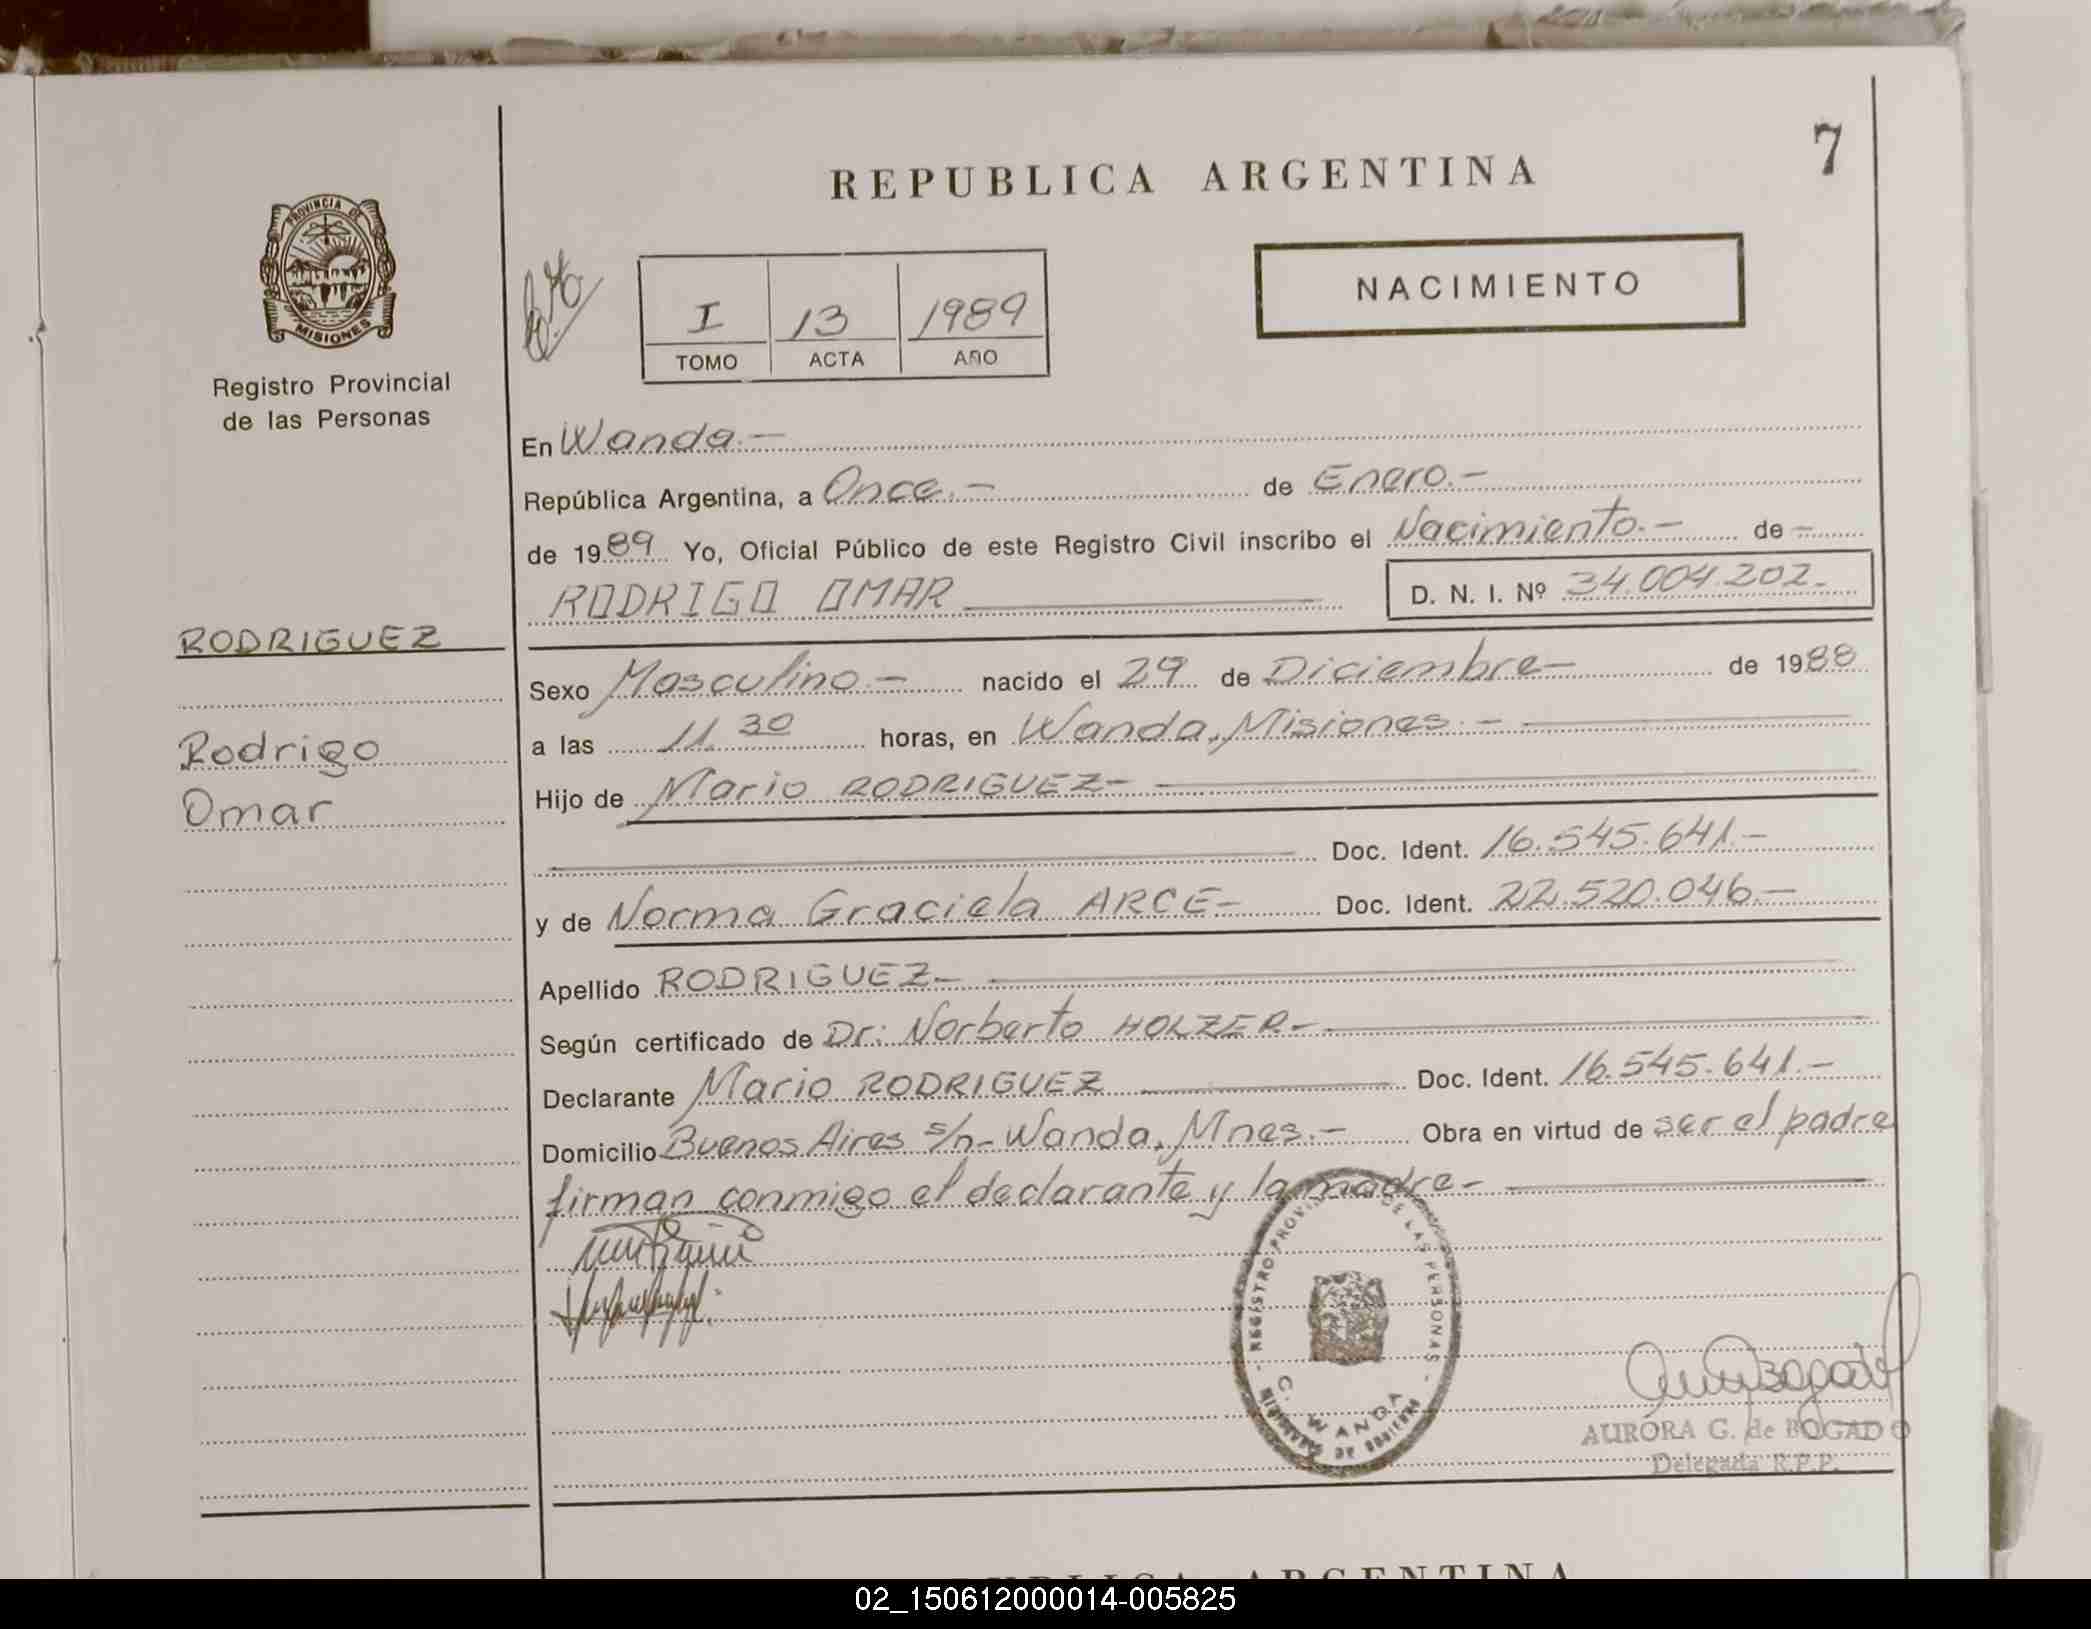 REPUBLICA ARGENTINA
7
PROVINCIA DE
MISIONES
Registro Provincial
de las Personas
I 13 1989
TOMO ACTA AÑO
NACIMIENTO
En Wanda.-
República Argentina, a Once.- de Enero.-
de 1989 Yo, Oficial Público de este Registro Civil inscribo el Nacimiento.- de -
RODRIGO OMAR D. N. I. Nº 34.004.202.-
RODRIGUEZ
Rodrigo
Omar
Sexo Masculino.- nacido el 29 de Diciembre- de 1988
a las 11 30 horas, en Wanda, Misiones.-
Hijo de Mario RODRIGUEZ-
Doc. Ident. 16.545.641.-
y de Norma Graciela ARCE- Doc. Ident. 22.520.046.-
Apellido RODRIGUEZ-
Según certificado de Dr: Norberto HOLZER-
Declarante Mario RODRIGUEZ Doc. Ident. 16.545.641.-
Domicilio Buenos Aires s/n- Wanda, Mnes.- Obra en virtud de ser el padre
firman conmigo el declarante y la madre-
REGISTRO PROVINCIAL DE LAS PERSONAS
C. WANDA
AURORA G. de BOGADO
Delegada R.P.P.
ARGENTINA
02_150612000014-005825